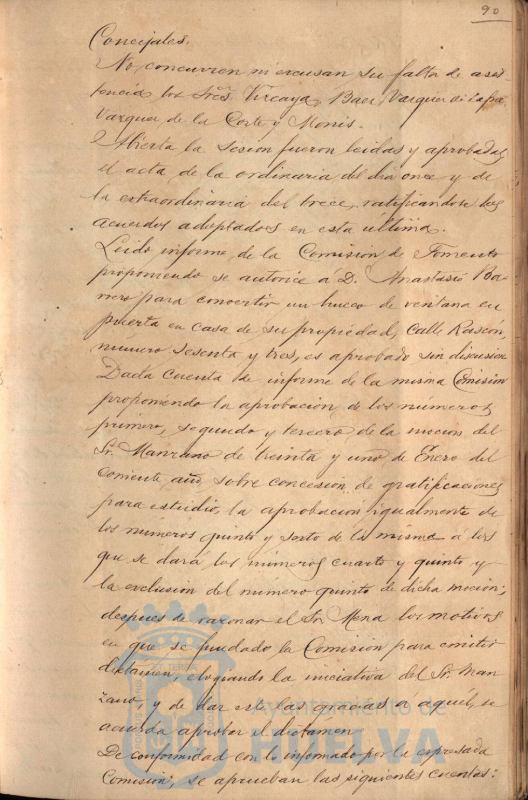 90
Concejales.
No concurren ni excusan su falta de asis-
tencia los Sres. Vizcaya, Baez, Vazquez de Zafra
Vazquez de la Corte y Monis.
Abierta la sesion fueron leidas y aprobadas
el acta de la ordinaria del dia once y de
la extraordinaria del trece, ratificandose los
acuerdos adoptados en esta ultima.
Leido informe de la Comision de Fomento
proponiendo se autorice a D. Anastasio Ba-
rrero para convertir un hueco de ventana en
puerta en casa de su propiedad, Calle Rascon,
numero sesenta y tres, es aprobado sin discusion
Dada cuenta de informe de la misma Comision
proponiendo la aprobacion de los números
primero, segundo y tercero de la mocion del
Sr. Manzano de treinta y uno de Enero del
corriente año, sobre concesion de gratificaciones
para estudio, la aprobacion igualmente de
los números quinto y sexto de la misma a los
que se dará los números cuarto y quinto y
la exclusion del número quinto de dicha mocion;
despues de razonar el Sr. Mena los motivos
en que se fundado la Comision para emitir
dictamen, elogiando la iniciativa del Sr. Man-
zano, y de dar este las gracias a aquél, se
acuerda aprobar el dictámen
De conformidad con lo informado por la expresada
Comision, se aprueban las siguientes cuentas:
Ayuntamiento de
HUELVA